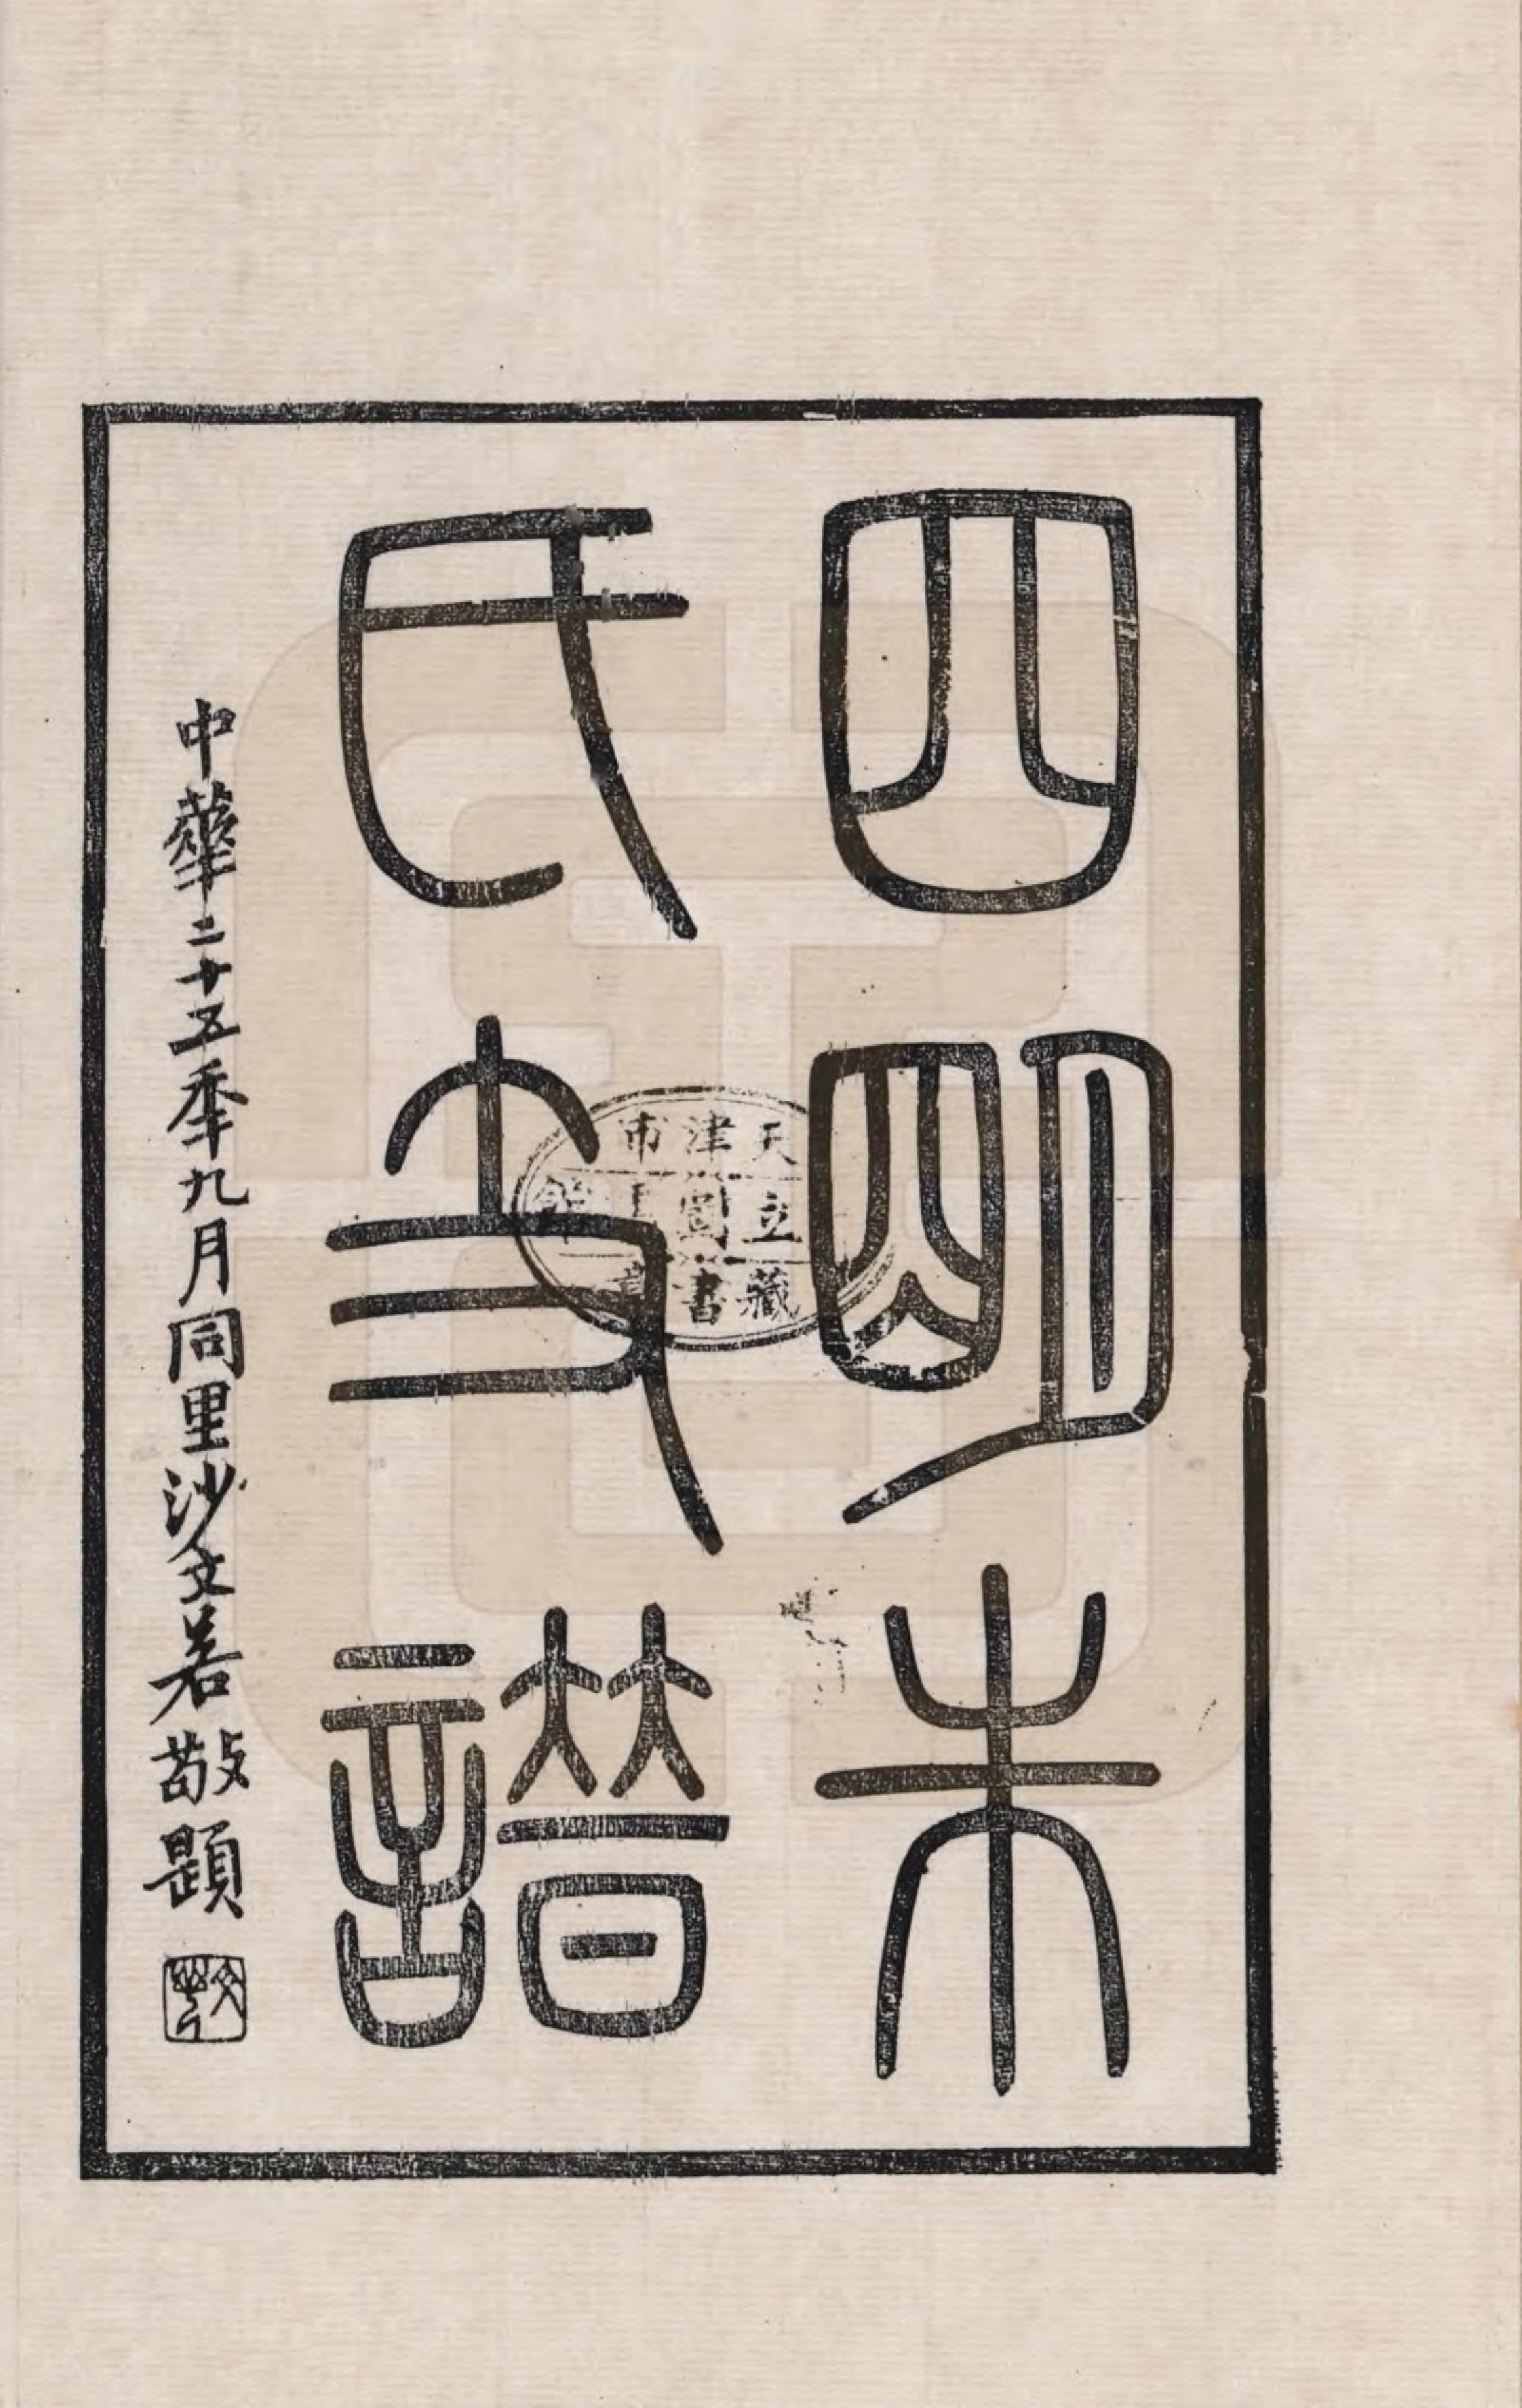 四明朱
氏支譜
中華二十五秊九月同里沙文若敬題
天津市
立圖書館
藏書章